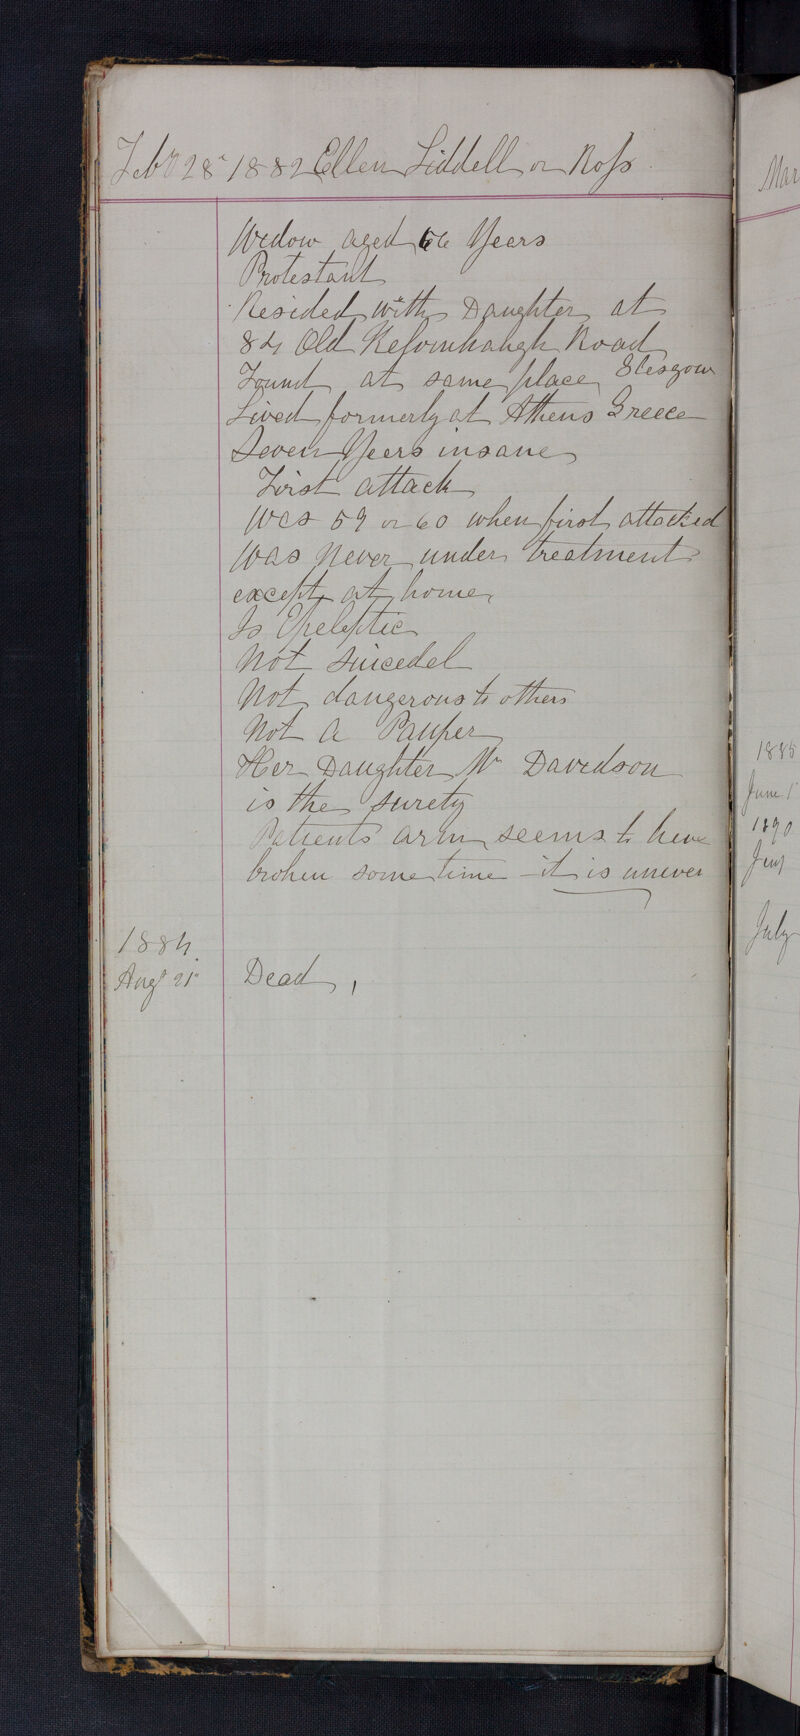 Feby 28th 1882 Ellen Liddell or Ross
Widow aged 66 Years
Protestant
Resided with Daughter at
84 Old Road
Found at same place Glasgow
Lived formerly at Athens Greece
Seven Years insane
First attack
Was 59 or 60 when first attacked
Was never under treatment
except at home
Is Epeleptic
Not Suicedel
Not dangerous to others
Not a Pauper
Her Daughter Mrs Davidson
is the surety
Patients arm seems to have
broken some time - it is uneven
1884
Augt 21st Dead,
Mar
1885
June 1
1890
July